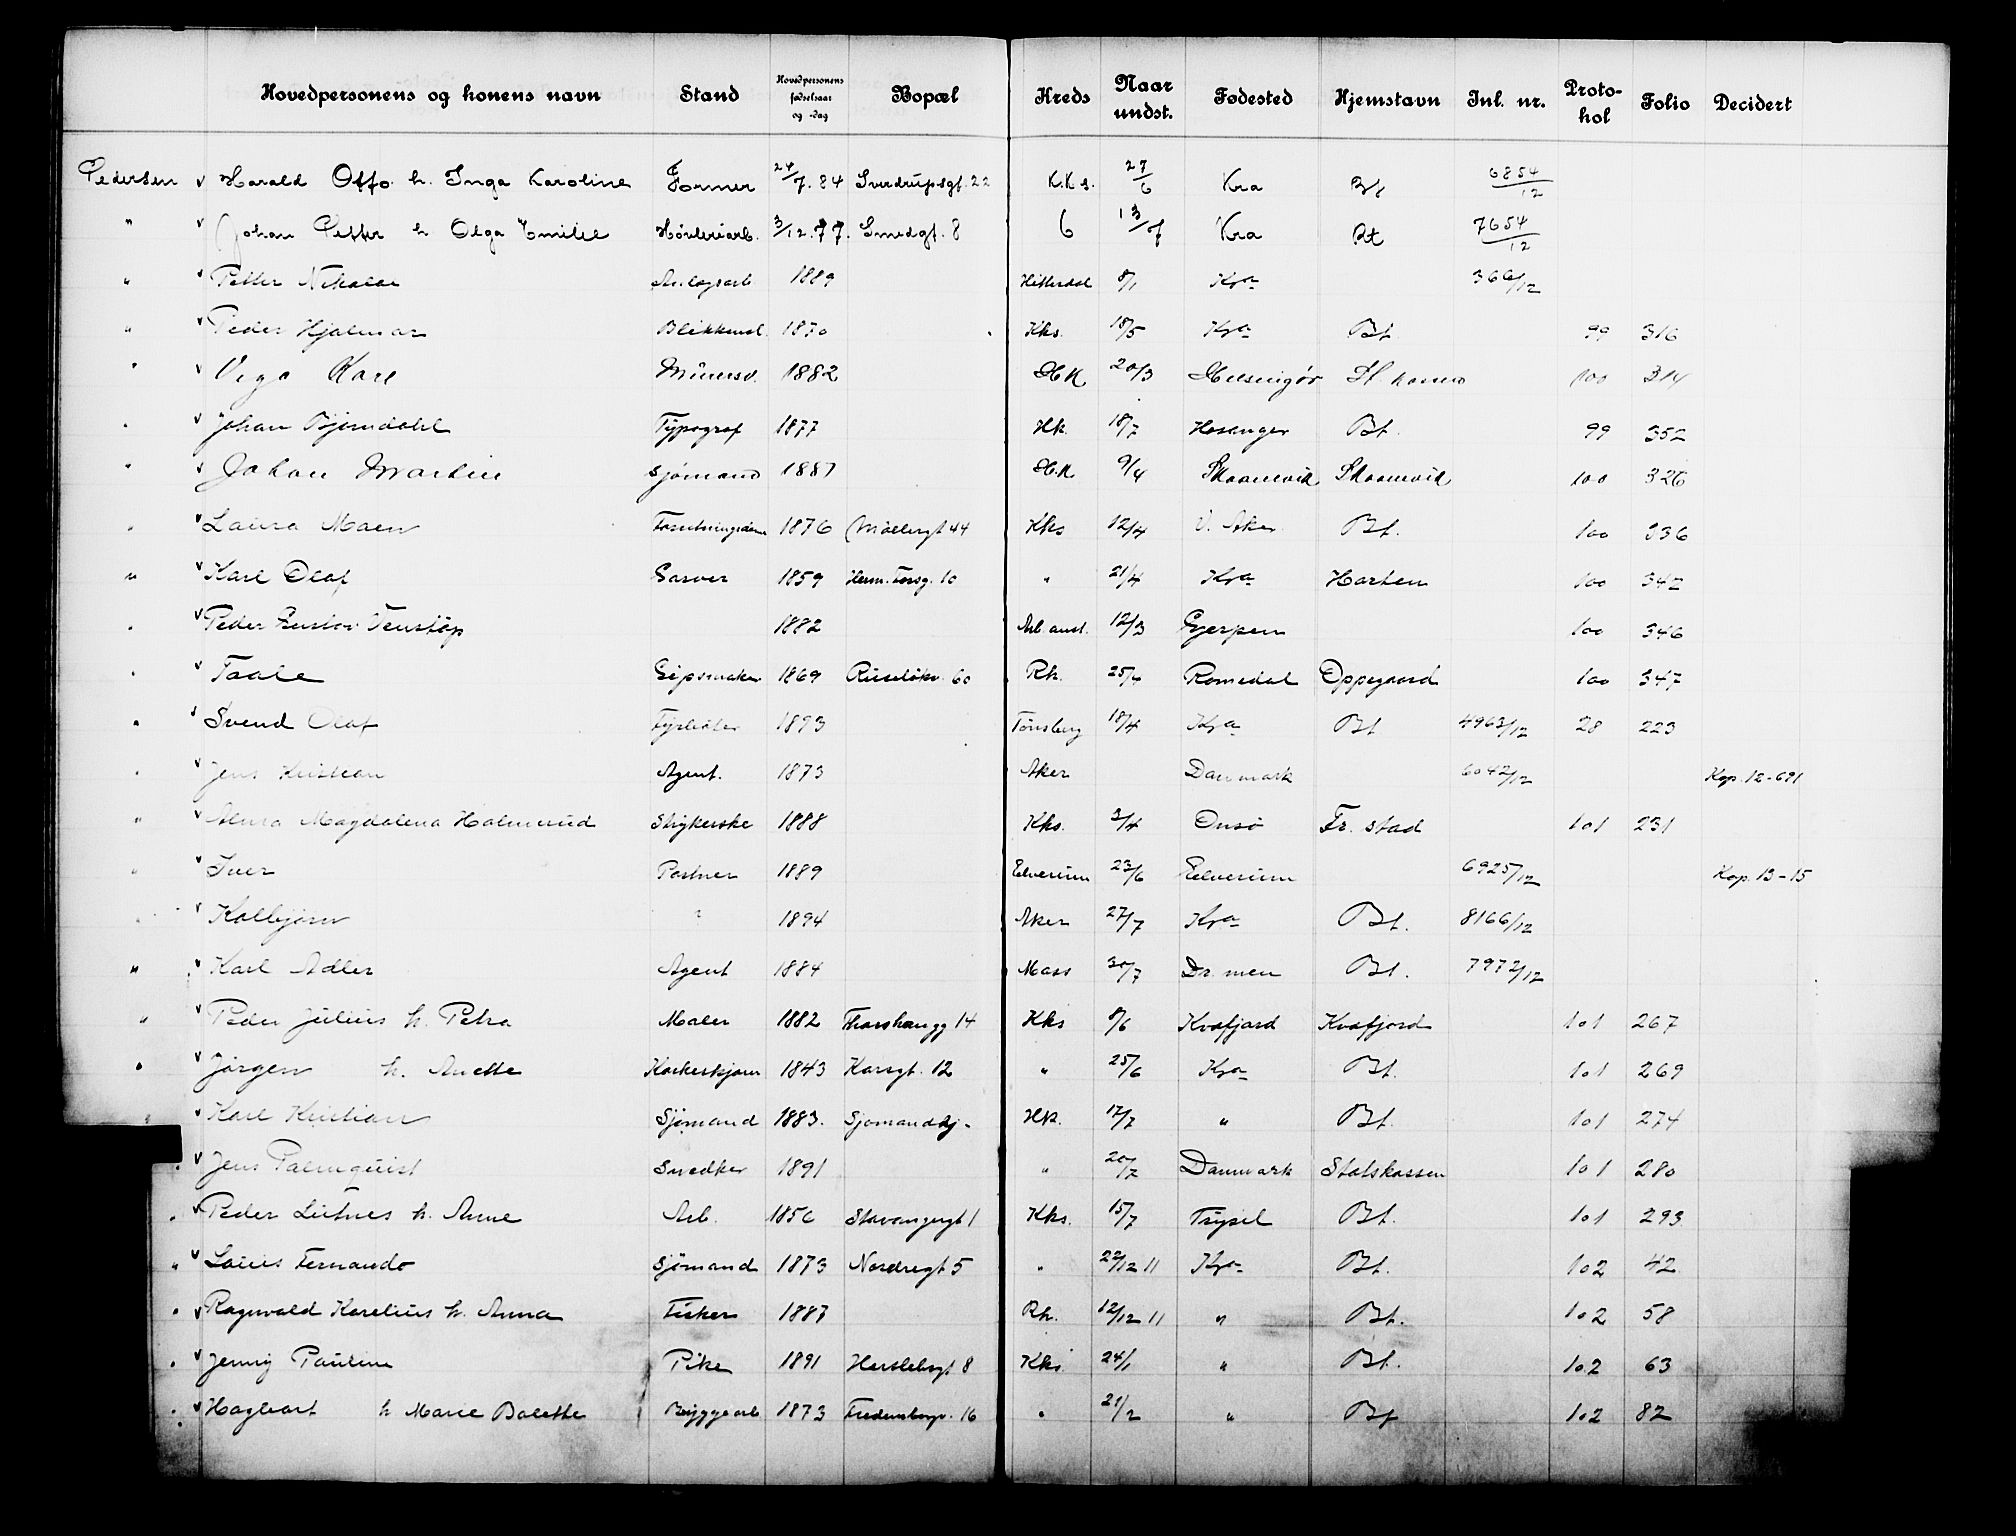 Hovedpersonens og konens navn Stand Hovedpersonens fødselsaar og -dag Bopæl Kreds Naar undst. Fødested Hjemstavn Inl. nr. Protokol Folio Decidert
Pedersen v Harald Otto h. Inga Karoline Former 24/7.84 Sverdrupsgt. 22 K.k.s. 27/6 Kra Bt 6854/12
" v Johan Petter h Olga Emilie Høvleriarb. 3/12.77. Smedgt. 8 6 13/7 Kra Bt 7654/12
" v Petter Nikolai 1889 Hitterdal 8/1 Kra 366/12
" v Peder Hjalmar Blikkensl. 1870 Kks. 18/5 Kra Bt. 99 316
" v Vigo Karl Murersv. 1882 H.K 20/3 Helsingør 100 314
" v Johan Bjørndahl Typograf 1877 Hk. 18/7 Hosanger Bt. 99 352
" v Johan Martin Sjømand 1887 H.K. 9/4 Skaanevik Skaanevik 100 326
" v Laura Maen 1876 Møllergt 44 Kks 12/4 V. Aker Bt. 100 336
" v Karl Olaf Garver 1859 Herm. Forsg. 10 " 21/4 Kra Horten 100 342
" v Peder Gustav Venstøp 1882 Arb. anst. 12/3 Gjerpen 100 346
" v Taale Gipsmaker 1869 Ruseløkv. 60 Rh. 25/4 Romedal Oppegaard 100 347
" v Svend Olaf Fyrbøter 1893 Tønsberg 18/4 Kra Bt 4963/12 28 223
" v Jens Kristian Agent. 1873 Aker Danmark 6042/12 Kop. 12-691
" v Alma Magdalena Holmerud Strykerske 1888 Kks. 3/4 Onsø Fr. stad 101 231
" v Iver Portner 1889 Elverum 23/6 Elverum 6925/12 Kop 13-15
" v Kolbjørn ? 1894 Aker 27/7 Kra Bt. 8166/12
" v Karl Adler Agent 1884 Moss 30/7 Dr. men Bt. 7972/12
" v Peder Julius h. Petra Maler 1882 Thorshaugg 14 Kks 8/6 Kvæfjord Kvæfjord 101 267
" v Jørgen h. Anette Korkeskjærer 1843 Korsgt. 12 " 25/6 Kra Bt. 101 269
" v Karl Kristian Sjømand 1883. Sjømandshj. Hk. 17/7 " Bt. 101 274
" v Jens Palmquist Snedker 1891 " 20/7 Danmark Statskassen 101 280
" v Peder Lutnes h. Anne Arb. 1856 Stavangergt 1 Kks. 15/7 Trysil Bt. 101 293
" v Louis Fernando Sjømand 1873 Nordregt 5 " 22/12 11 Kra Bt. 102 42
" v Ragnvald Karelius h. Anna Fisker 1887 Rh. 12/12 11 " Bt. 102 58
" v Jenny Pauline Pike 1891 Herslebsgt 8 Kks. 24/1 " Bt. 102 63
" v Hagbart h Marie Bolette Bryggearb. 1873 Fredensborgv. 16 " 21/2 " Bt 102 82